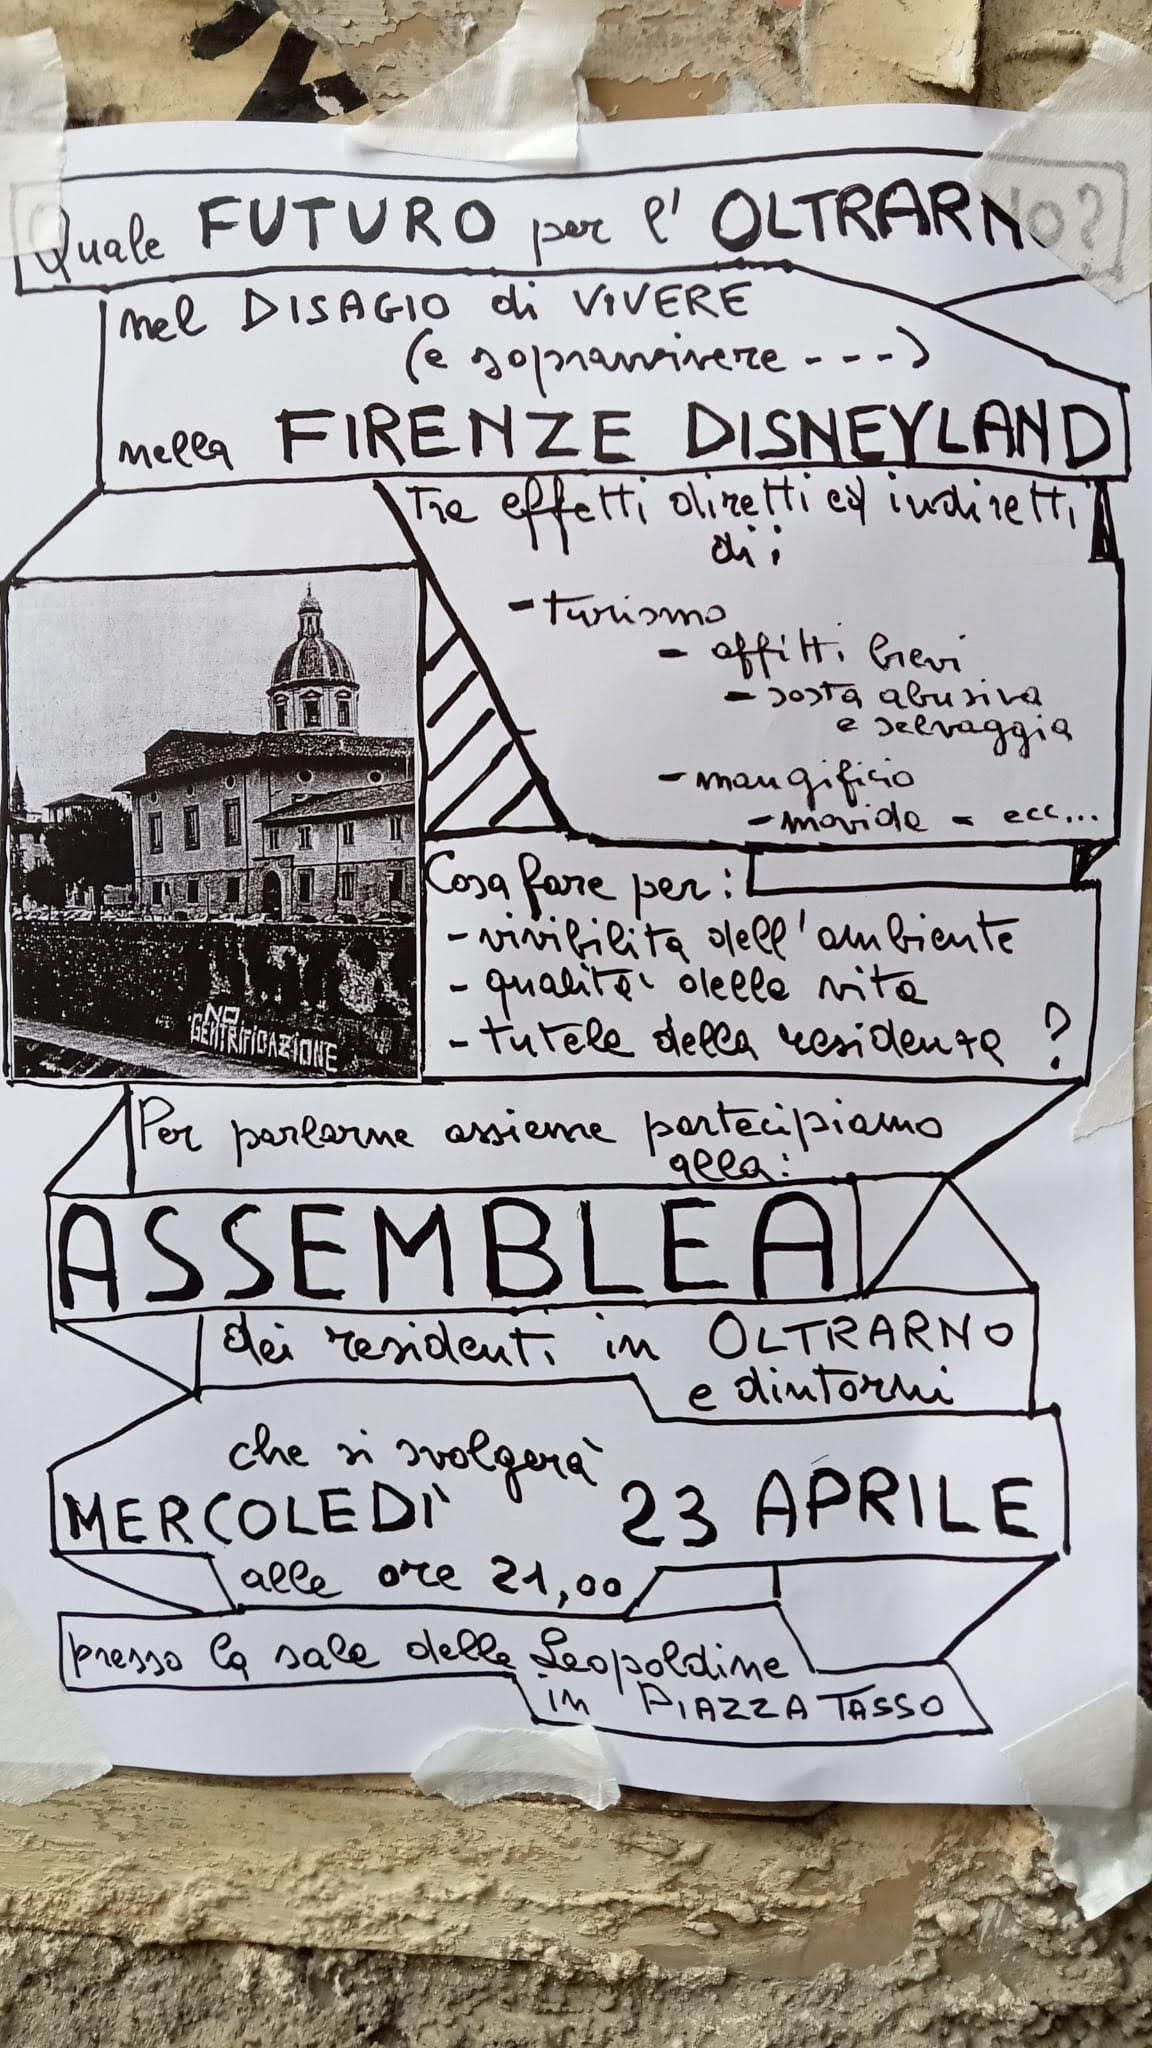 Quale FUTURO per l' OLTRARNO?
nel DISAGIO di VIVERE
(e sopravvivere ----)
nella FIRENZE DISNEYLAND
Tra effetti diretti ed indiretti
di:
- turismo
- affitti brevi
- sosta abusiva
e selvaggia
- mangificio
- movida - ecc...
Cosa fare per:
- vivibilità dell'ambiente
- qualità della vita
- tutela della residenza ?
NO
GENTRIFICAZIONE
Per parlarne assieme partecipiamo
alla:
ASSEMBLEA
dei residenti in OLTRARNO
e dintorni
che si svolgerà
MERCOLEDÌ 23 APRILE
alle ore 21,00
presso la sala delle Leopoldine
in PIAZZA TASSO